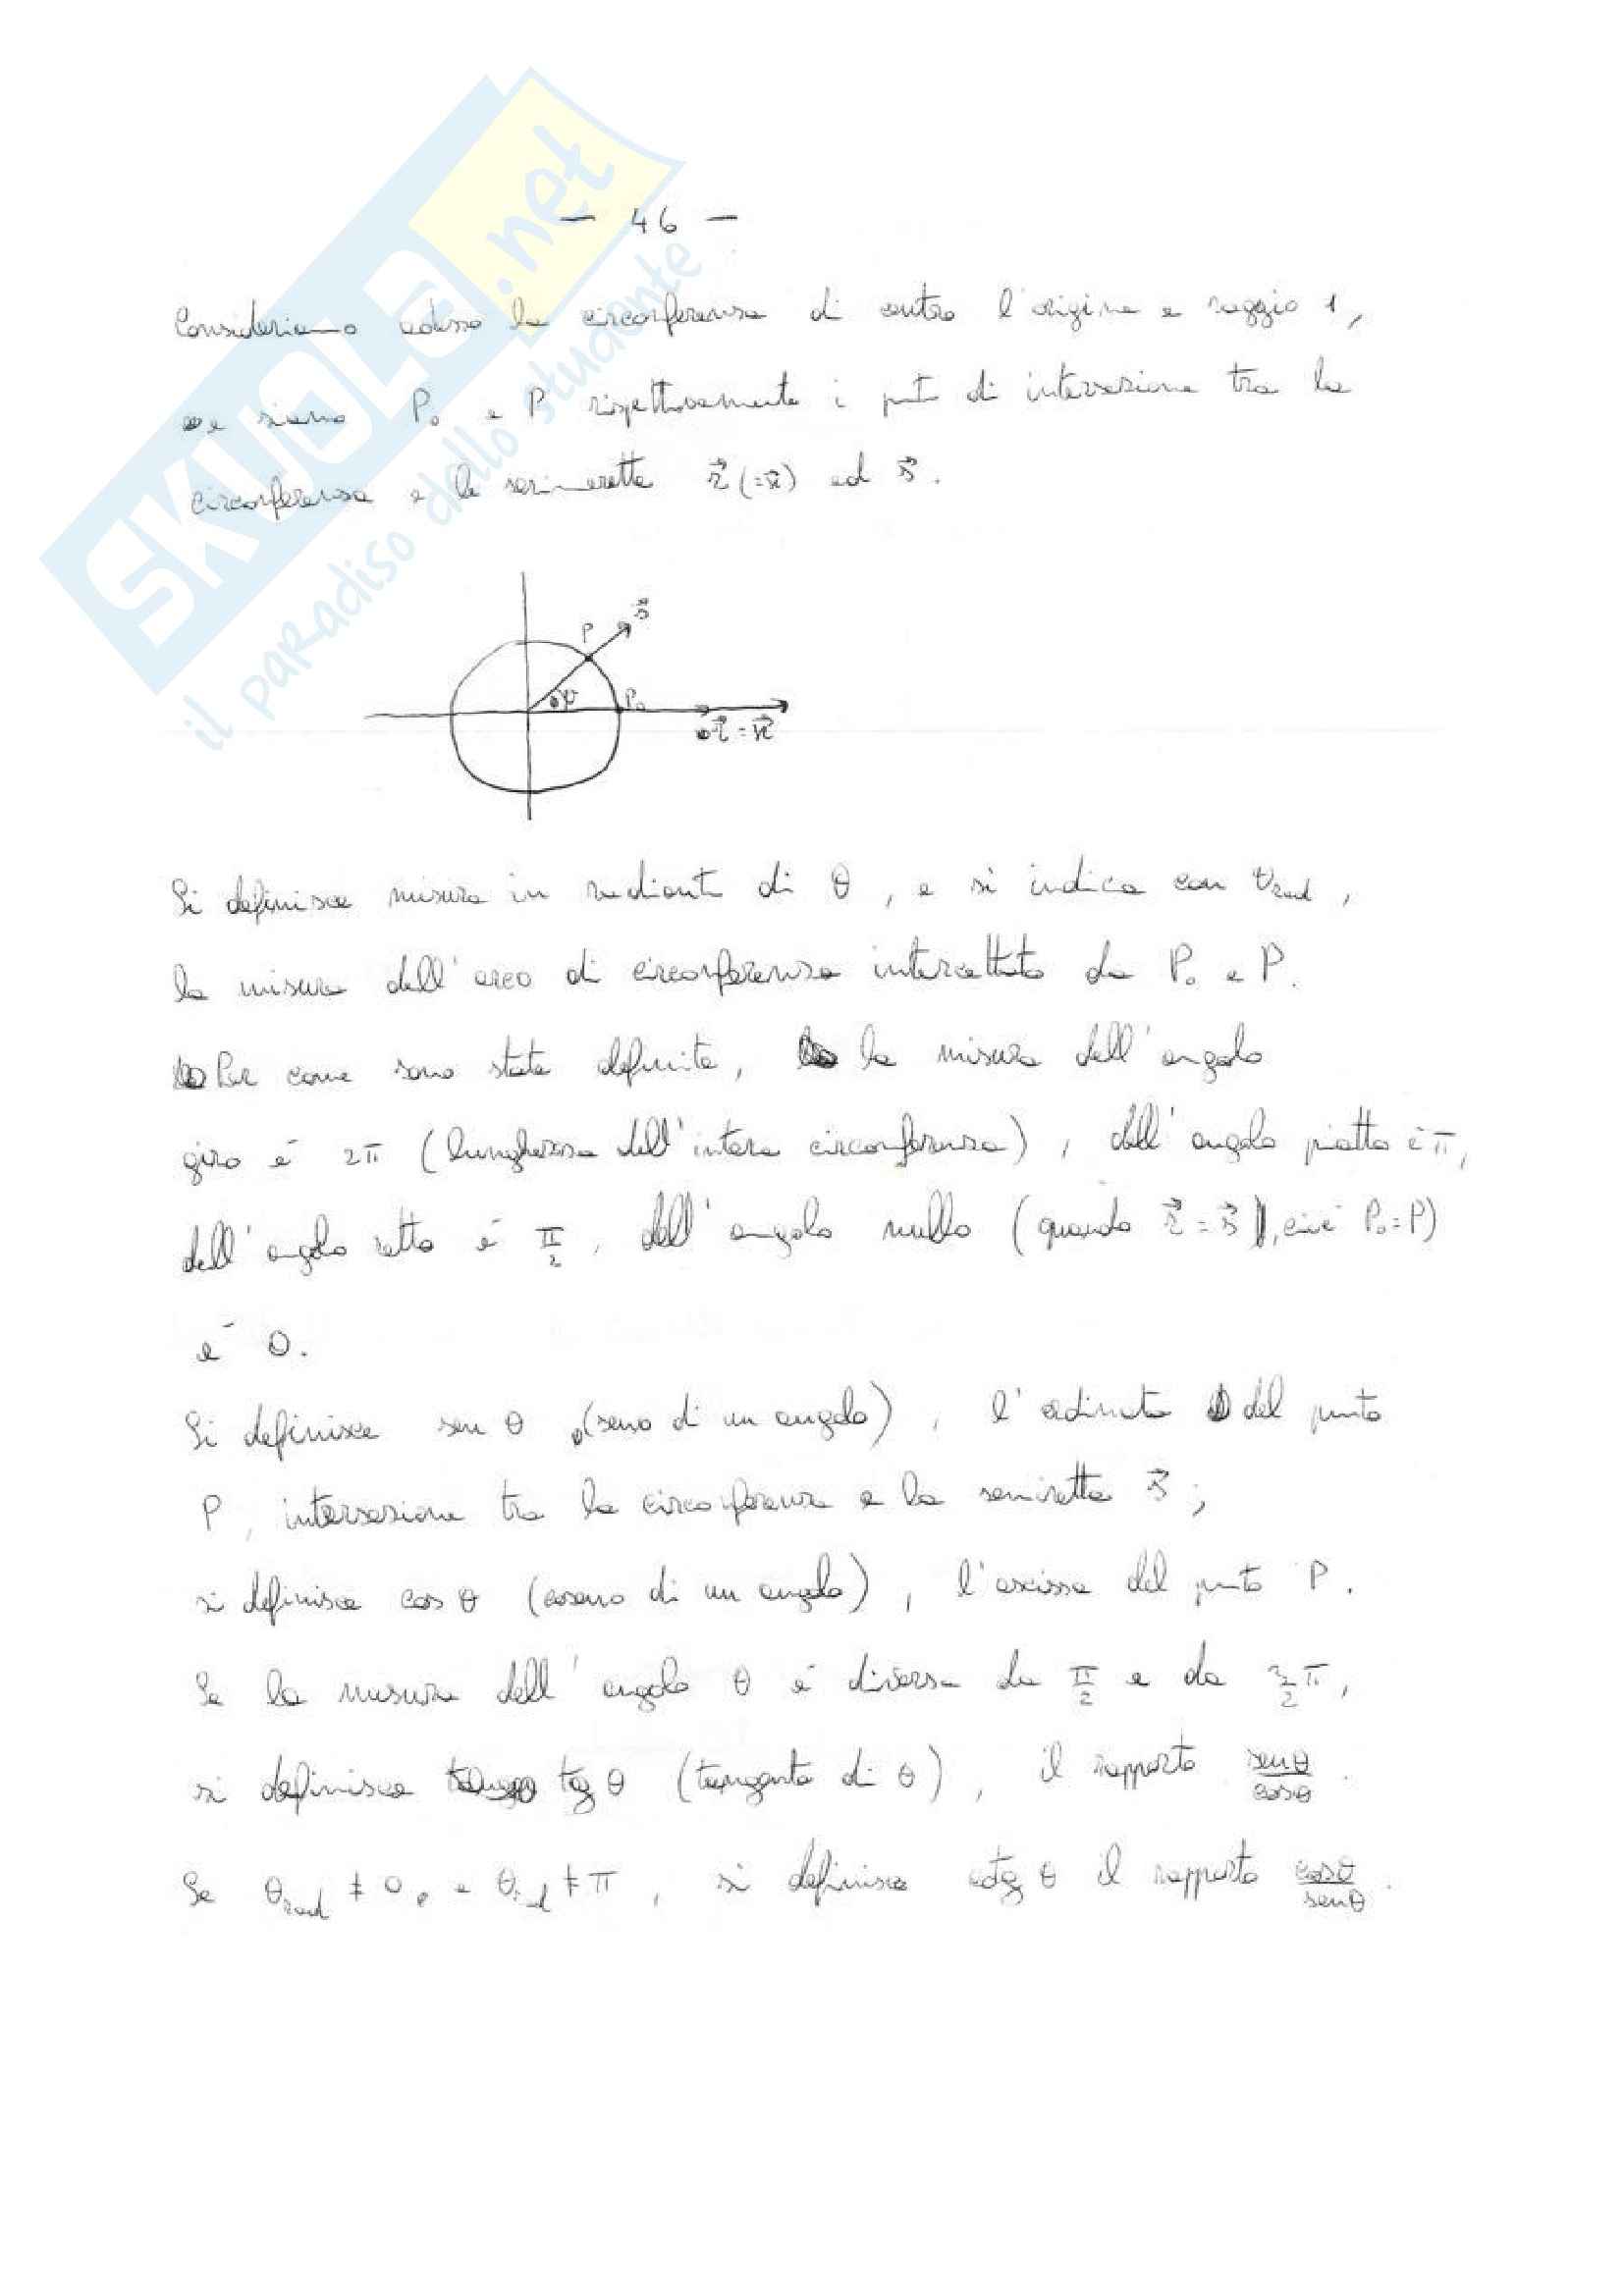 SKUOLA.net
il paradiso dello studente
— 46 —
Consideriamo adesso la circonferenza di centro l'origine e raggio 1,
e siano P₀ e P rispettivamente i punti di intersezione tra la
circonferenza e le semirette r⃗ (=x⃗) ed s⃗.
P s⃗
θ P₀
r⃗ = x⃗
Si definisce misura in radianti di θ, e si indica con θrad,
la misura dell'arco di circonferenza intercettato da P₀ e P.
Per come sono state definite, la misura dell'angolo
giro è 2π (lunghezza dell'intera circonferenza), dell'angolo piatto è π,
dell'angolo retto è π/2, dell'angolo nullo (quando r⃗ = s⃗, cioè P₀ = P)
è 0.
Si definisce sen θ (seno di un angolo), l'ordinata del punto
P, intersezione tra la circonferenza e la semiretta s⃗;
si definisce cos θ (coseno di un angolo), l'ascissa del punto P.
Se la misura dell'angolo θ è diversa da π/2 e da 3/2 π,
si definisce tg θ (tangente di θ), il rapporto senθ/cosθ.
Se θrad ≠ 0, e θrad ≠ π, si definisce cotg θ il rapporto cosθ/senθ.